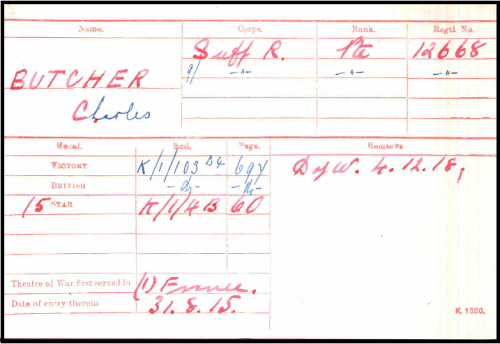 Name. Corps. Rank. Regtl. No.
Suff R. Pte 12668
BUTCHER 9/ -"- -"- -"-
Charles
Medal. Roll. Page. Remarks
VICTORY K/1/103 B4 697 D of W. 4.12.18,
BRITISH -Do- -Do-
15 STAR K/1/4B 60
Theatre of War first served in (1) France.
Date of entry therein 31.8.15.
K. 1380.